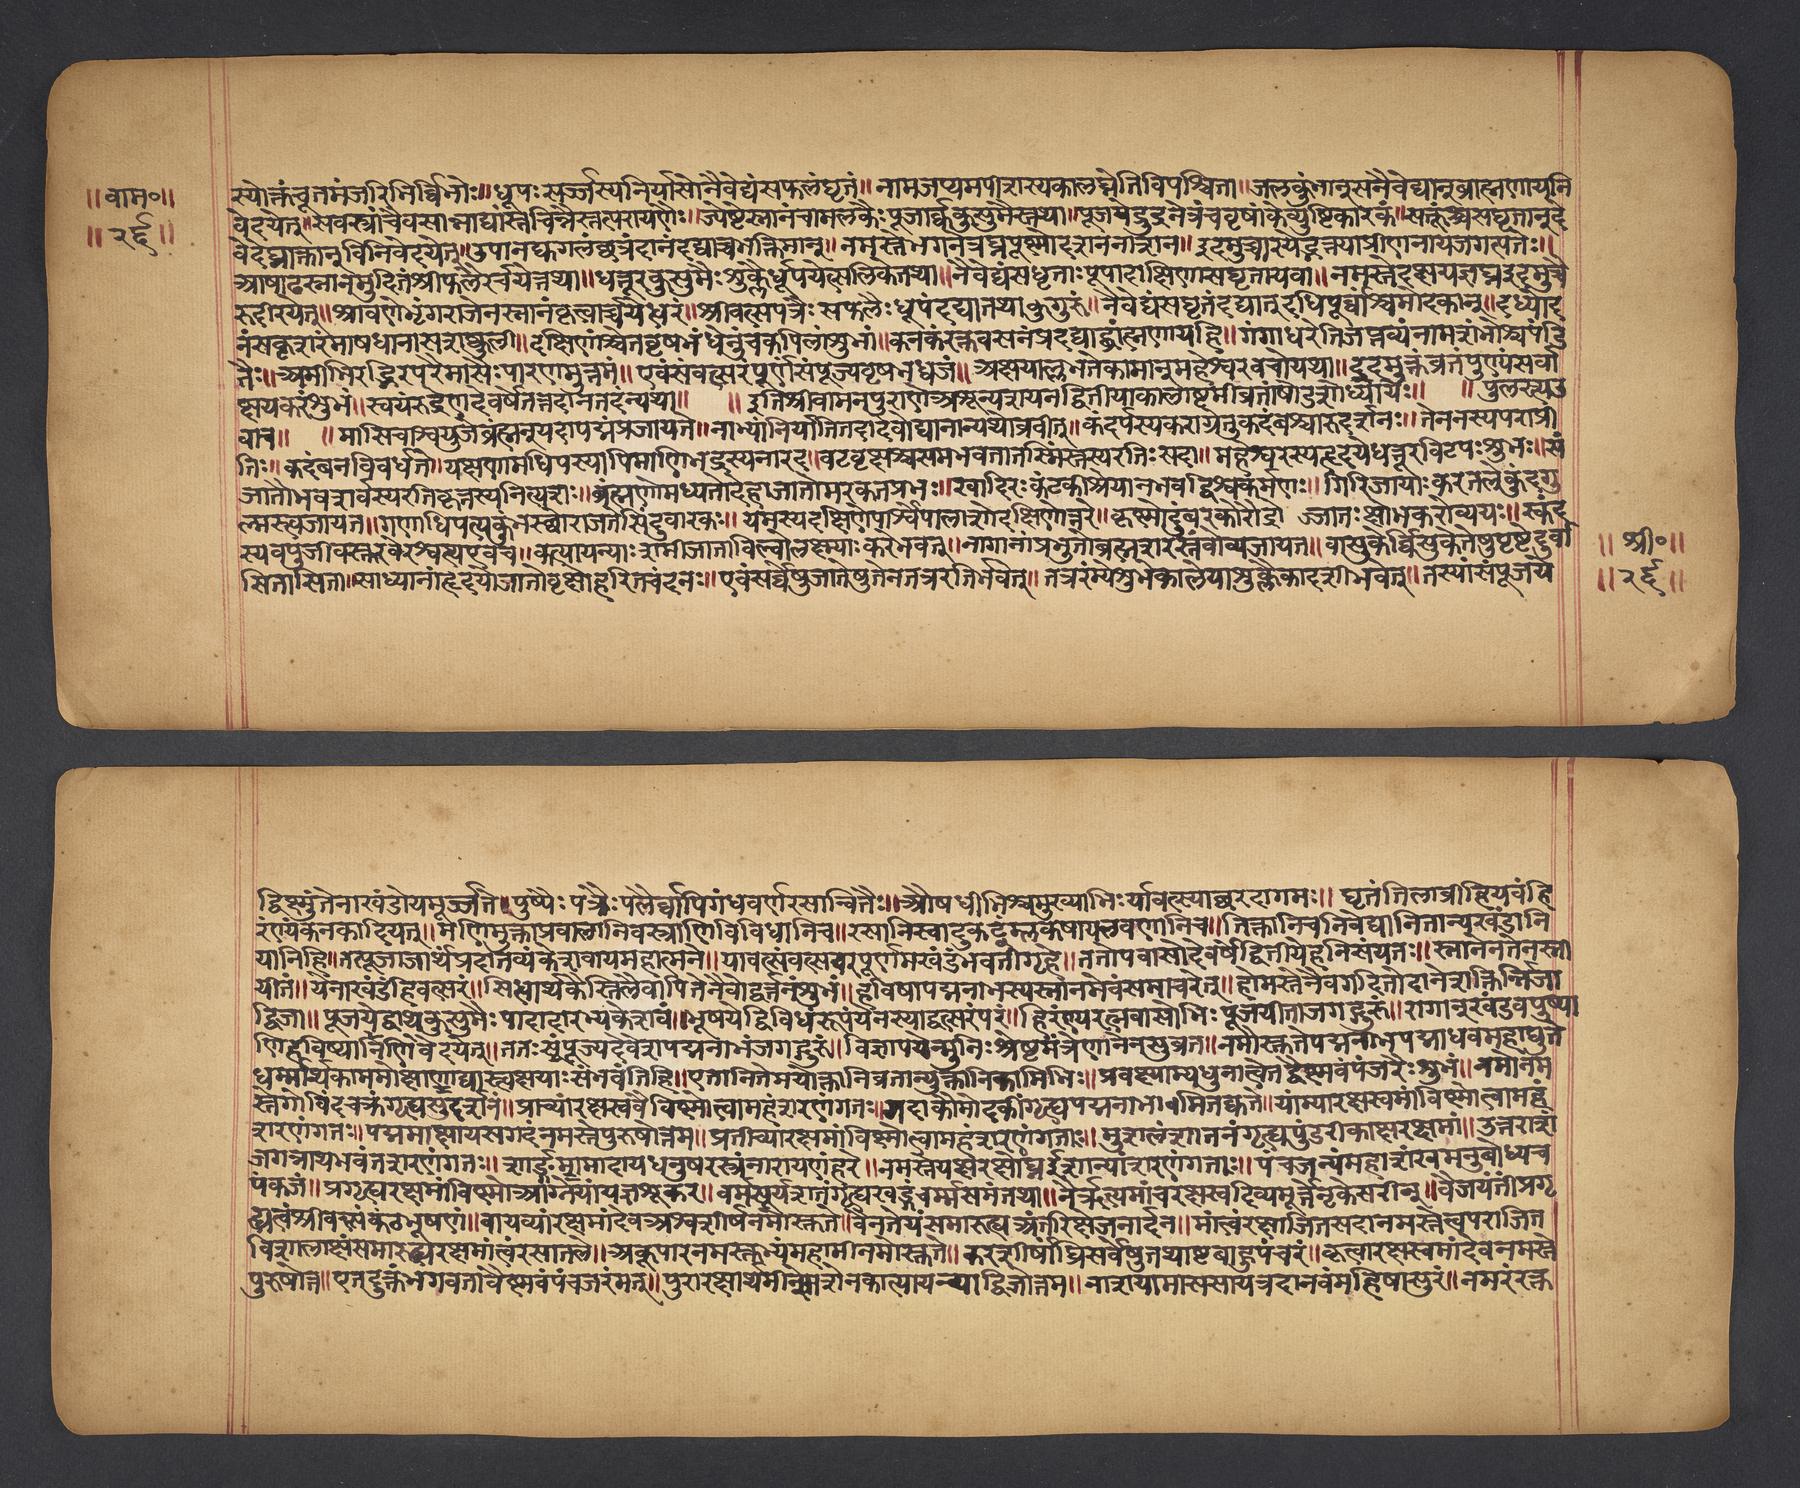 ॥वाम०॥
॥२६॥
स्योक्तंचूतमंजरिभिर्विभोः॥धूपःसर्ज्जस्यनिर्यासोनैवेद्यंसफलंघृतं॥नामजप्यमपीशस्यकालघ्नेतिविपश्चिता॥जलकुंभान्सनैवेद्यान्ब्राह्मणायनि
वेदयेत्॥सवस्त्रांचैवसान्नाद्यांस्तच्चित्तैस्तत्परायणैः॥ज्येष्टेस्नानंचामलकैःपूजार्ककुसुमैस्तथा॥पूजयेद्दुदुनेत्रंचवृषांकंव्युष्टिकारकं॥सक्तूंश्चसघृतान्देवे
देदध्नाक्तान्विनिवेदयेत्॥उपानद्युगलंछत्रंदानंदद्याच्चभक्तिमान्॥नमस्तेभगनेत्रघ्नपूष्णोदशननाशन॥इदमुच्चारयेद्भक्त्याप्रीणनायजगत्पतेः॥
आषाढेस्नानमुदितंश्रीफलैरर्चयेत्तथा॥धत्तूरकुसुमैःशुक्लैर्धूपयेत्सिल्हकंतथा॥नैवेद्यंसघृताःपूपादक्षिणासघृतायवा॥नमस्तेदक्षयज्ञघ्नइदमुच्चै
रुदीरयेत्॥श्रावणेभृंगराजेनस्नानंकृत्वार्च्चयेद्धरं॥श्रीवत्सपत्रैःसफलैःधूपंदद्यात्तथागुरुं॥नैवेद्यंसघृतंदद्यात्दधिपूर्वाश्चमोदकान्॥दध्योद
नंसकृशरंमाषधानासशष्कुली॥दक्षिणांश्वेतवृषभंधेनुंचकपिलांशुभां॥कनकंरक्तवसनंप्रदद्याद्ब्राह्मणायहि॥गंगाधरेतिजप्तव्यंनामशंभोश्चपंडि
तैः॥अमीभिःषड्भिरपरैर्मासैःपारणमुत्तमं॥एवंसंवत्सरंपूर्णंसंपूज्यवृषभध्वजं॥अक्षयाल्लभतेकामान्महेश्वरवचोयथा॥इदमुक्तंव्रतंपुण्यंसर्वा
क्षयकरंशुभं॥स्वयंरुद्रेणदेवर्षेतत्तथानतदन्यथा॥ ॥इतिश्रीवामनपुराणेअशून्यशयनद्वितीयाकालाष्टमीव्रतंषोडशोध्यायः॥ ॥पुलस्त्यउ
वाच॥ ॥मासिचाश्वयुजेब्रह्मन्यदापद्मंप्रजायते॥नाभ्यांनिर्यातितदादेवोद्यानान्यथोब्रवीत्॥कंदर्पस्यकराग्रेतुकदंबश्चारुदर्शनः॥तेनतस्यपराप्री
तिः॥कदंबेनविवर्धते॥यक्षाणामधिपस्यापिमणिभद्रस्यनारद॥वटवृक्षश्चसमभवत्तस्मिंस्तस्यरतिःसदा॥महेश्वरस्यहृदयेधत्तूरविटपःशुभः॥सं
जातोभवशर्वस्यरतिकृत्तस्यनित्यशः॥ब्रह्मणोमध्यतोदेहाज्जातोमरकतप्रभः॥खादिरःकंटकीश्रेयानभवद्विश्वकर्मणः॥गिरिजायाःकरतलेकुंदगु
ल्मस्त्वजायत॥गणाधिपस्यकुंभस्थोराजतेसिंदुवारकः॥यमस्यदक्षिणेपार्श्वेपालाशोदक्षिणोत्तरे॥कृष्णोदुंबरकोरौद्रो ज्जातःक्षोभकरोव्ययः॥स्कंद
स्यबंधुजीवस्तुरवेरश्वत्थएवच॥कात्यायन्याःशमीजाताबिल्वोलक्ष्म्याःकरेभवत्॥नागानांप्रभुतोब्रह्मशरस्तंबोव्यजायत॥वासुकेर्विस्तृतेपुछेपृष्टेदूर्वा
सितासिता॥साध्यानांहृदयेजातोवृक्षोहरितचंदनः॥एवंसर्वेषुजातेषुतेनतत्ररतिर्भवेत्॥तत्ररम्येशुभेकालेयाशुक्लैकादशीभवेत्॥तस्यांसंपूजये
॥श्री०॥
॥२६॥
द्विष्णुंतेनाखंडोयमूर्ज्जिते॥पुष्पैःपत्रैःफलैर्वापिगंधवर्णरसान्वितैः॥औषधीभिश्चमुख्याभिःर्यावत्स्याच्छरदागमः॥घृतंतिलाव्रीहियवंहि
रण्यंकनकादियत्॥मणिमुक्ताप्रवालानिवस्त्राणिविविधानिच॥रसानिस्वादुकट्वम्लकषायलवणानिच॥तिक्तानिचनिवेद्यानितान्यखंडानि
यानिहि॥तत्पूजाजार्थंप्रदातव्यंकेशवायमहात्मने॥यावत्संवत्सरंपूर्णमखंडंभवतेगृहे॥ततोपवासोदेवर्षेद्वितीयेहनिसंयतः॥स्नानेनतेनस्ना
योतं॥येनाखंडंहिवत्सरं॥सिद्धार्थकैस्तिलैर्वापितेनैवोद्वर्त्तनंशुभं॥हविषापद्मनाभस्यस्नानमेवंसमाचरेत्॥होमस्तेनैवगदितोदानेशक्तिर्निजा
द्विजा॥पूजयेद्वाथकुसुमैःपादादारभ्यकेशवं॥भूषयेद्विविधंरूपंयेनस्याद्वत्सरंपरं॥हिरण्यरत्नवासोभिःपूजयीताजगद्गुरुं॥रागान्नरवंडवपुष्पा
णिहविष्यानिनिवेदयेत्॥ततःसंपूज्यदेवेशंपद्मनाभंजगद्गुरुं॥विज्ञापयेन्मुनिःश्रेष्टमंत्रेणानेनसुव्रत॥नमोस्तुतेपद्मनाभपद्माधवमहाद्युते
धर्मार्थकाममोक्षाणाद्यास्त्वक्षयाःसंभवंतिहि॥एतानितेमयोक्तानिव्रतान्युक्तानिकामिभिः॥प्रवक्ष्याम्यधुनात्वेतद्वैष्णवंपंजरंशुभं॥नमोनम
स्तेगोविंदचक्रंगृह्यसुदर्शनं॥प्राच्यांरक्षस्वमेविष्णोत्वामहंशरणंगतः॥गदांकौमोदकींगृह्यपद्मनाभामितद्युते॥याम्यांरक्षस्वमांविष्णोत्वामहं
शरणंगतः॥पद्ममादायसगदंनमस्तेपुरुषोत्तम॥प्रतीच्यांरक्षमांविष्णोत्वामहंशरणंगतः॥मुशलंशातनंगृह्यपुंडरीकाक्षरक्षमां॥उत्तरस्यां
जगन्नाथभवंतंशरणंगतः॥शार्ङ्गमादायधनुषरस्त्रंनारायणंहरे॥नमस्तेयक्षरक्षोघ्नईशान्यांशरणंगतः॥पंचजन्यंमहाशंखमनुबोध्यच
पंकजं॥प्रगृह्यरक्षमांविष्णोआग्नेयांयज्ञशूकर॥चर्मसूर्यशतंगृह्यखड्गंचर्म्मासमंतथा॥नैर्ऋत्यमांचरक्षस्वदिव्यमूर्त्तेनृकेसरीन्॥वैजयंतींप्रगृ
ह्यत्वंश्रीवत्संकंठभूषणं॥वायव्यांरक्षमांदेवअश्वशीर्षनमोस्तुते॥वैनतेयंसमारुह्यअंतरिक्षेजनार्दन॥मांत्वंरक्षाजितसदानमस्तेत्वपराजित
विशालाक्षंसमारुह्यरक्षमांत्वंरसातले॥अकूपारनमस्तुभ्यंमहामीनमोस्तुते॥करशीर्षांघ्रिसर्वेषुतथाष्टबाहुपंचरं॥कृत्वारक्षस्वमांदेवनमस्ते
पुरुषोत्तम॥एतदुक्तंभगवतांवैष्णवंपंजरंमत्॥पुरारक्षार्थमीशेनकात्यायन्याद्विजोत्तम॥नाशयामाससायत्रदानवंमहिषासुरं॥नमरंरक्त